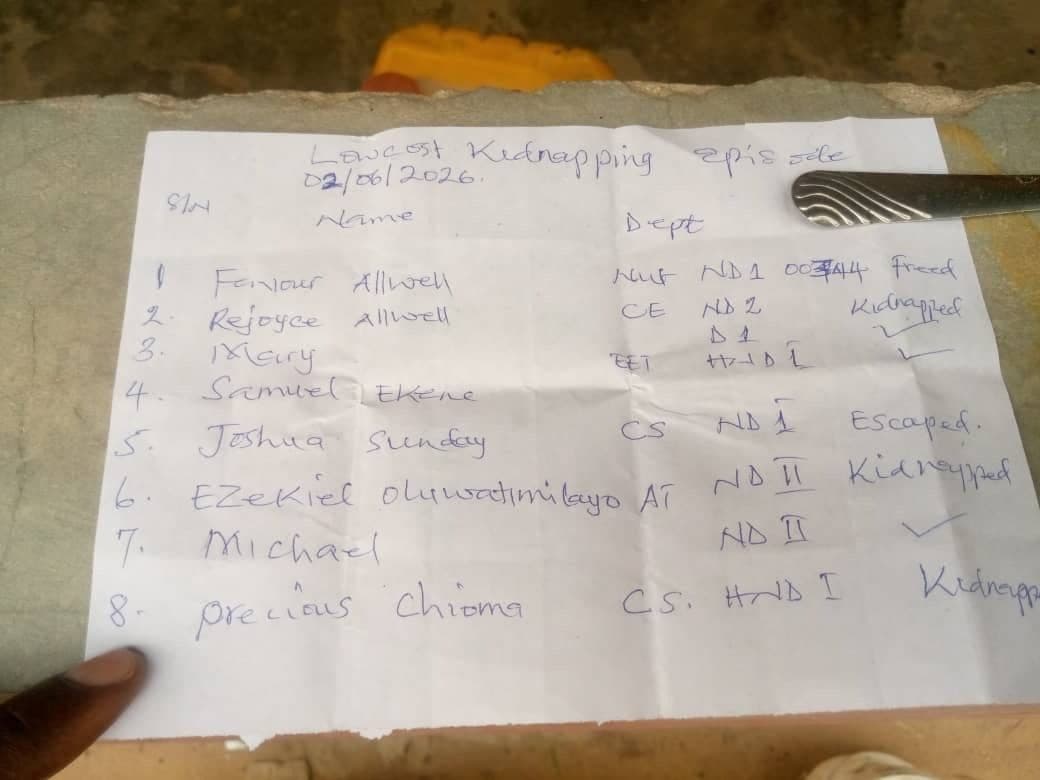 Lowcost Kidnapping episode
02/06/2026.
S/N Name Dept
1 Favour Allwell Nut ND1 Freed
2. Rejoyce Allwell CE ND 2 Kidnapped
3. Mary EET HND I ✓
4. Samuel Ekene
5. Joshua Sunday CS ND I Escaped.
6. Ezekiel Oluwatimilayo AT ND II Kidneypped
7. Michael ND II ✓
8. precious Chioma CS. HND I